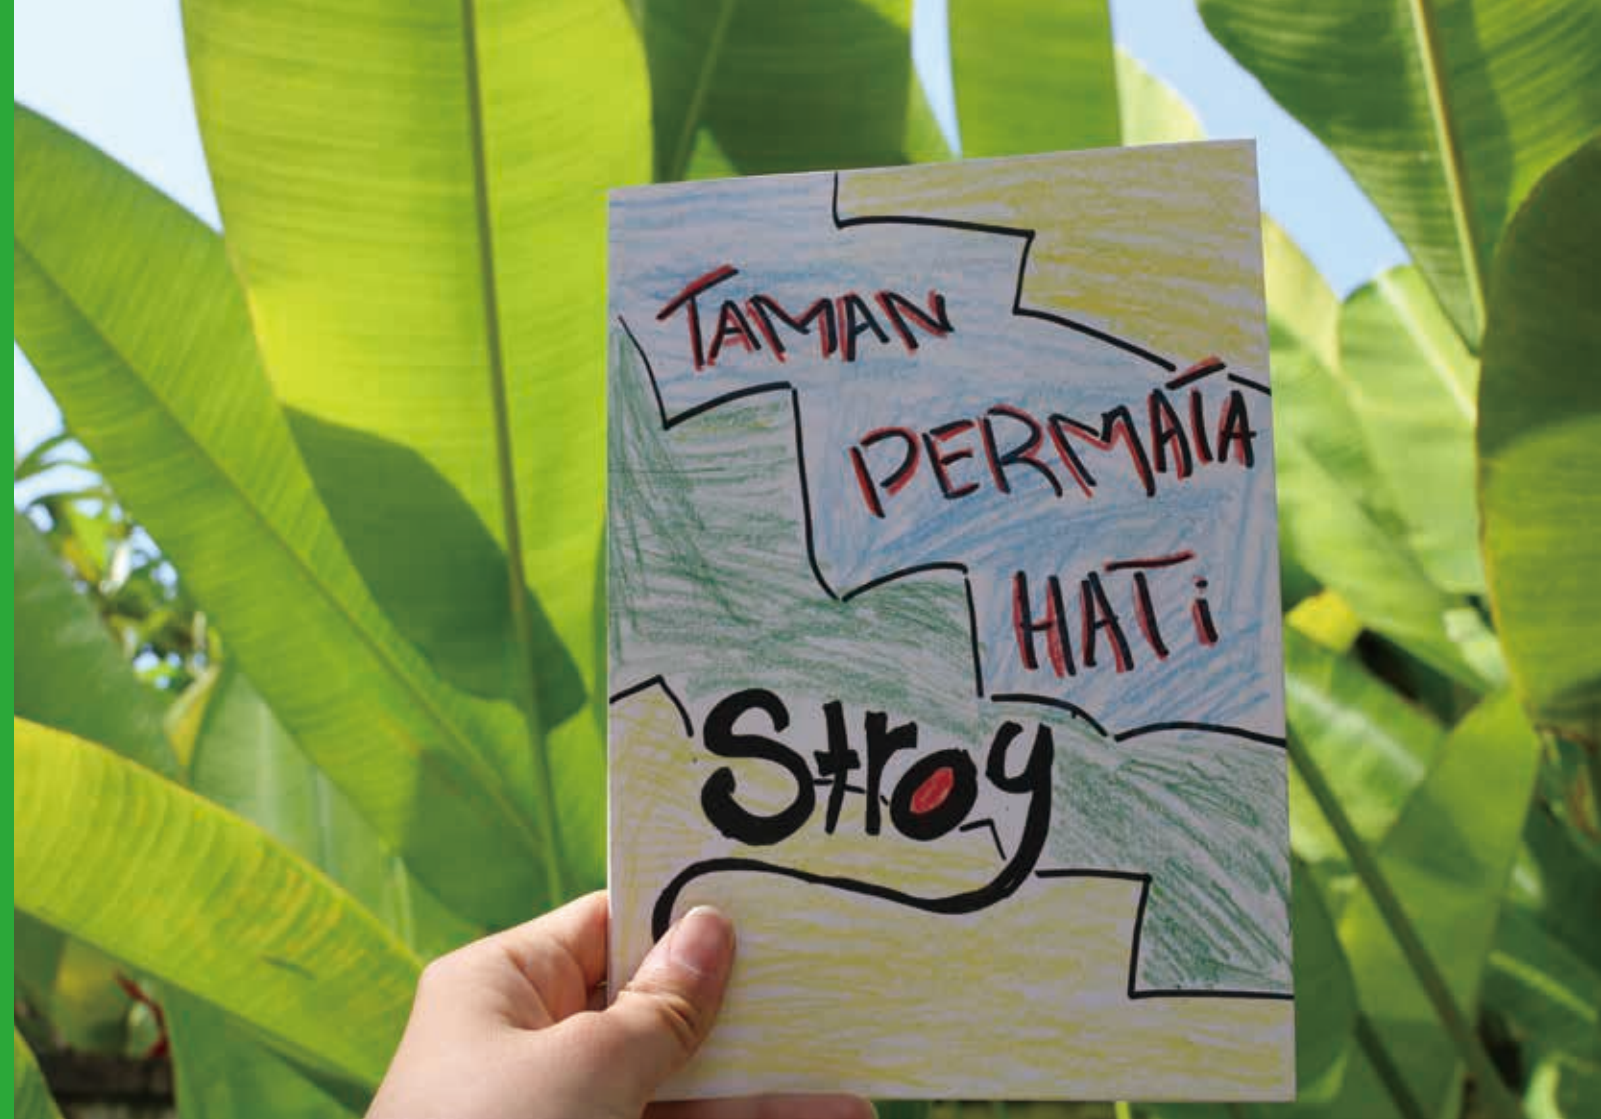 TAMAN
PERMATA
HATi
Stroy